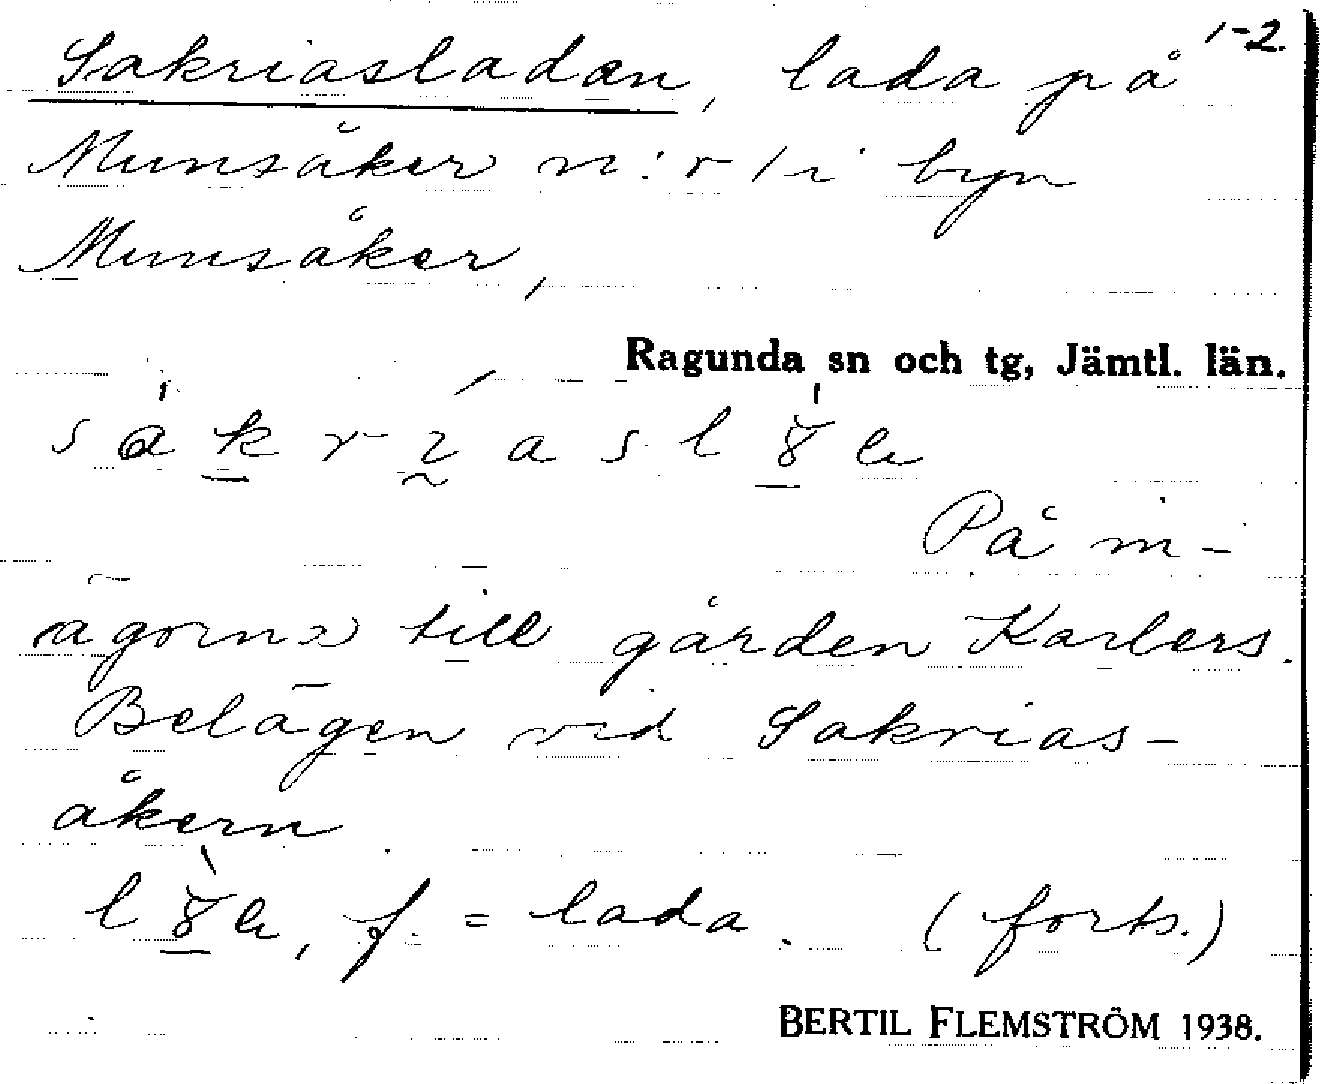 1-2.
Sakriasladan, lada på
Munsåker n:r 1 i byn
Munsåker,
Ragunda sn och tg, Jämtl. län.
På in-
ägorna till gården Karlers.
Belägen vid Sakrias-
åkern
f. = lada. (forts.)
BERTIL FLEMSTRÖM 1938.